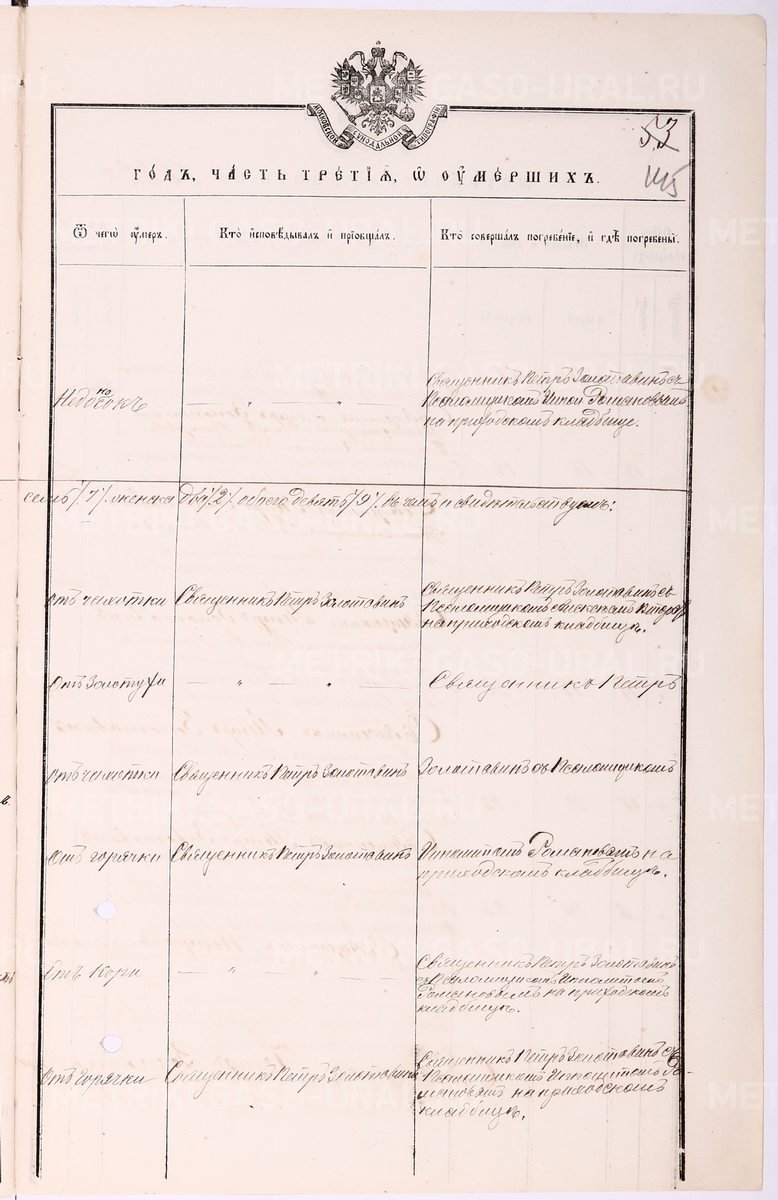 МОСКОВСКОЙ СУНОДАЛЬНОЙ ТИПОГРАФІИ
53
115
ГО́ДЪ, ЧА́СТЬ ТРЕ́ТІЯ, Ѿ ОУМЕ́РШИХЪ.
Ѿ чегѡ̀ оу́меръ.
Кто̀ и҆сповѣ́дывалъ и҆ прїѡбща́лъ.
Кто̀ соверша́лъ погребе́нїе, и҆ гдѣ̀ погребены̀.
Недоно
сокъ
Священникъ Петръ Золотавинъ съ
Псаломщикомъ Романовымъ
на приходскомъ кладбище.
семь /7/. женска два /2/. обоего девять /9/. въ чемъ и свидѣтельствуемъ:
Отъ чахотки
Священникъ Петръ Золотавинъ
Священникъ Петръ Золотавинъ съ
Псаломщикомъ
на приходскомъ кладбищѣ.
Отъ Золотухи
Священникъ Петръ
Отъ чахотки
Священникъ Петръ Золотавинъ
Золотавинъ съ Псаломщикомъ
Отъ горячки
Священникъ Петръ Золотавинъ
Ипполитомъ Романовымъ на
приходскомъ кладбищѣ.
Отъ Кори
Священникъ Петръ Золотавинъ
съ Псаломщикомъ Ипполитомъ
Романовымъ на приходскомъ
кладбищѣ.
Отъ Горячки
Священникъ Петръ Золотавинъ
Священникъ Петръ Золотавинъ съ
Псаломщикомъ Ипполитомъ Ро-
мановымъ на приходскомъ
кладбищѣ.